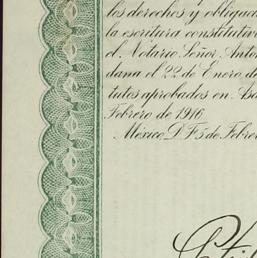 los derechos y obligac
la escritura constitutiv
el Notario Señor Anto
dana el 22 de Enero d
tutos aprobados en As
Febrero de 1916
México D F 5 de Febre